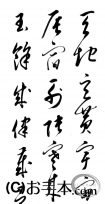 天地玄黄宇宙
辰宿列張寒来
閏餘成
(C)お手本.com